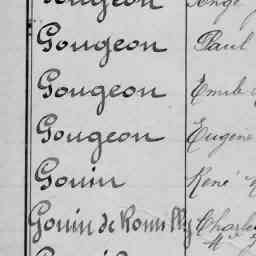 Gougeon
Gougeon Paul
Gougeon Emile
Gougeon Eugène
Gouin René
Gouin de Romilly Charles